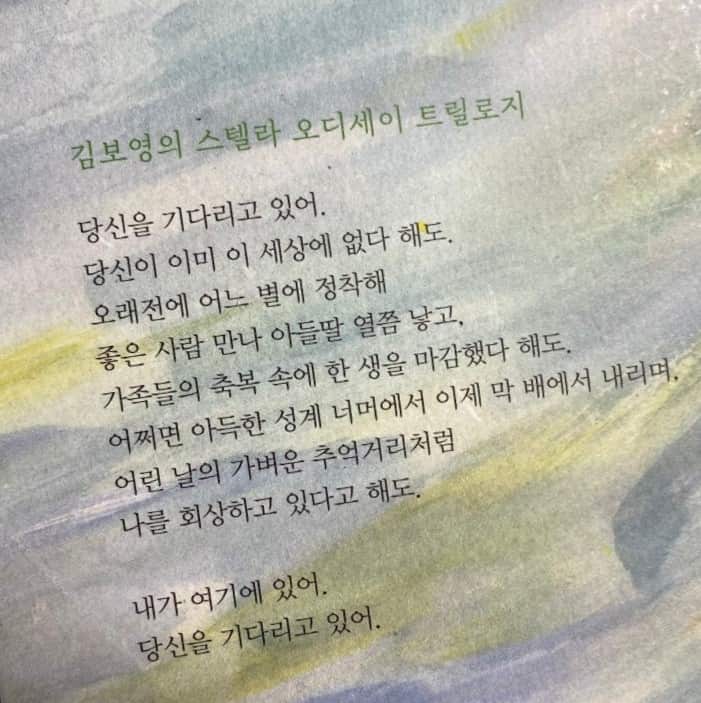 김보영의 스텔라 오디세이 트릴로지
당신을 기다리고 있어.
당신이 이미 이 세상에 없다 해도.
오래전에 어느 별에 정착해
좋은 사람 만나 아들딸 열쯤 낳고,
가족들의 축복 속에 한 생을 마감했다 해도.
어쩌면 아득한 성계 너머에서 이제 막 배에서 내리며,
어린 날의 가벼운 추억거리처럼
나를 회상하고 있다고 해도.
내가 여기에 있어.
당신을 기다리고 있어.